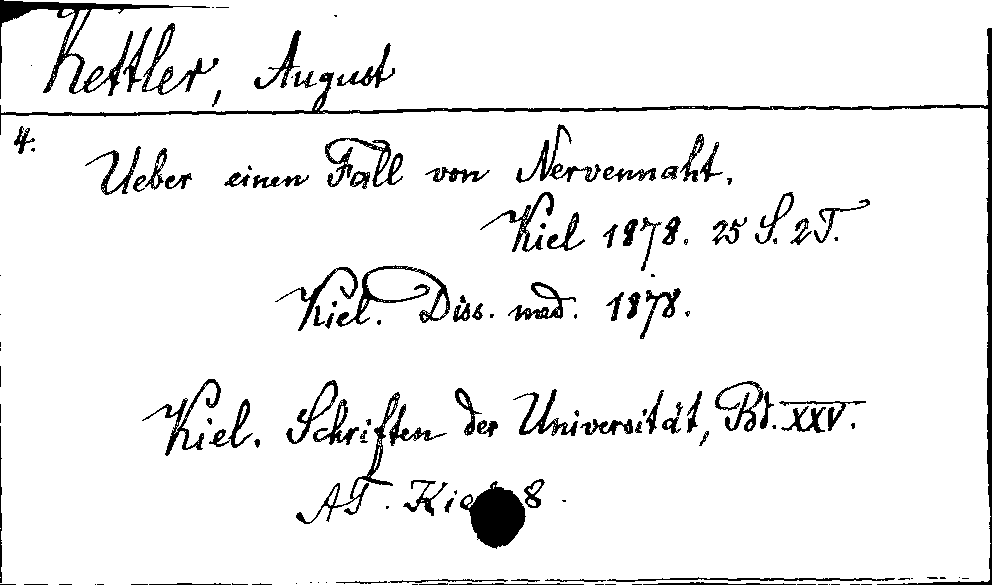 Kettler, August
4:
Ueber einen Fall von Nervennaht.
Kiel 1878. 25 S. 2 T.
Kiel. Diss. med. 1878.
Kiel. Schriften der Universität, Bd. XXV.
AT. 8.